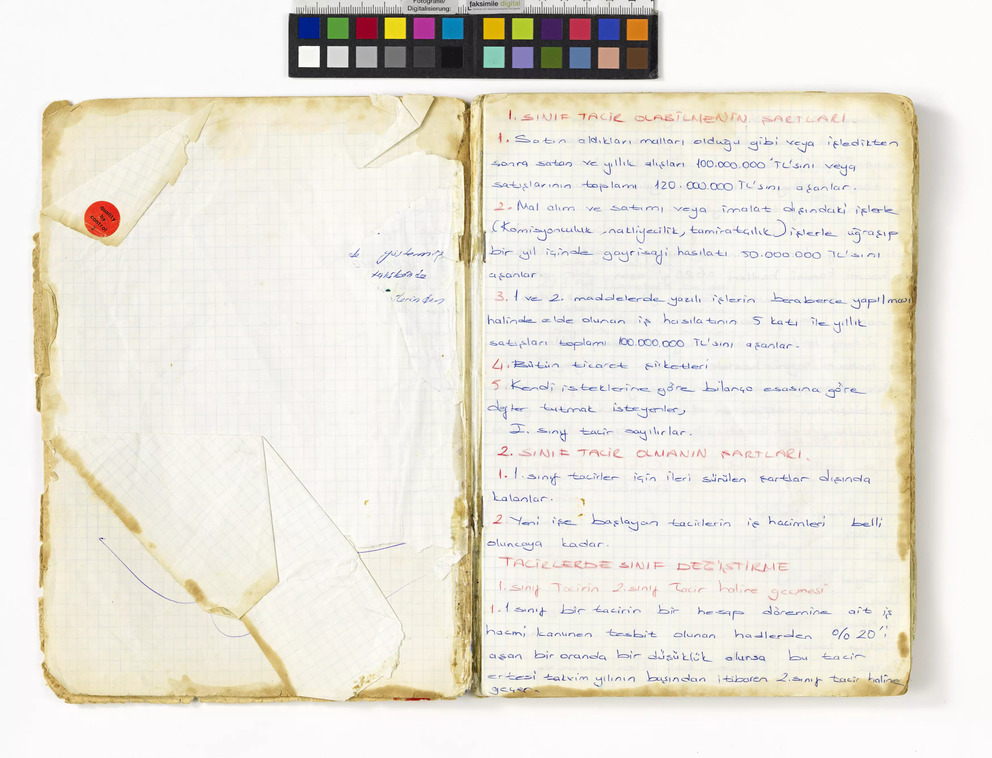 Fotografie/
Digitalisierung:
faksimile digital
quality
by
control
2
takibinde
1. SINIF TACİR OLABİLMENİN ŞARTLARI.
1. Satın aldıkları malları olduğu gibi veya işledikten
sonra satan ve yıllık alışları 100.000.000 TL'sını veya
satışlarının toplamı 120.000.000 TL'sını aşanlar.
2. Mal alım ve satımı veya imalat dışındaki işlerle
(Komisyonculuk, nakliyecilik, tamiratcılık) işlerle uğraşıp
bir yıl içinde gayrisafi hasılatı 50.000.000 TL'sını
aşanlar.
3. 1 ve 2. maddelerde yazılı işlerin beraberce yapılması
halinde elde olunan iş hasılatının 5 katı ile yıllık
satışları toplamı 100.000.000 TL'sını aşanlar.
4. Bütün ticaret şirketleri
5. Kendi isteklerine göre bilanço esasına göre
defter tutmak isteyenler,
I. sınıf tacir sayılırlar.
2. SINIF TACİR OLMANIN ŞARTLARI.
1. 1. sınıf tacirler için ileri sürülen şartlar dışında
kalanlar.
2. Yeni işe başlayan tacirlerin iş hacimleri belli
oluncaya kadar.
TACİRLERDE SINIF DEĞİŞTİRME
1. sınıf Tacirin 2. sınıf Tacir haline geçmesi
1. 1 sınıf bir tacirin bir hesap döremine ait iş
hacmi kanunen tesbit olunan hadlerden %20'i
aşan bir oranda bir düşüklük olursa bu tacir
ertesi takvim yılının başından itibaren 2. sınıf tacir haline
geçer.